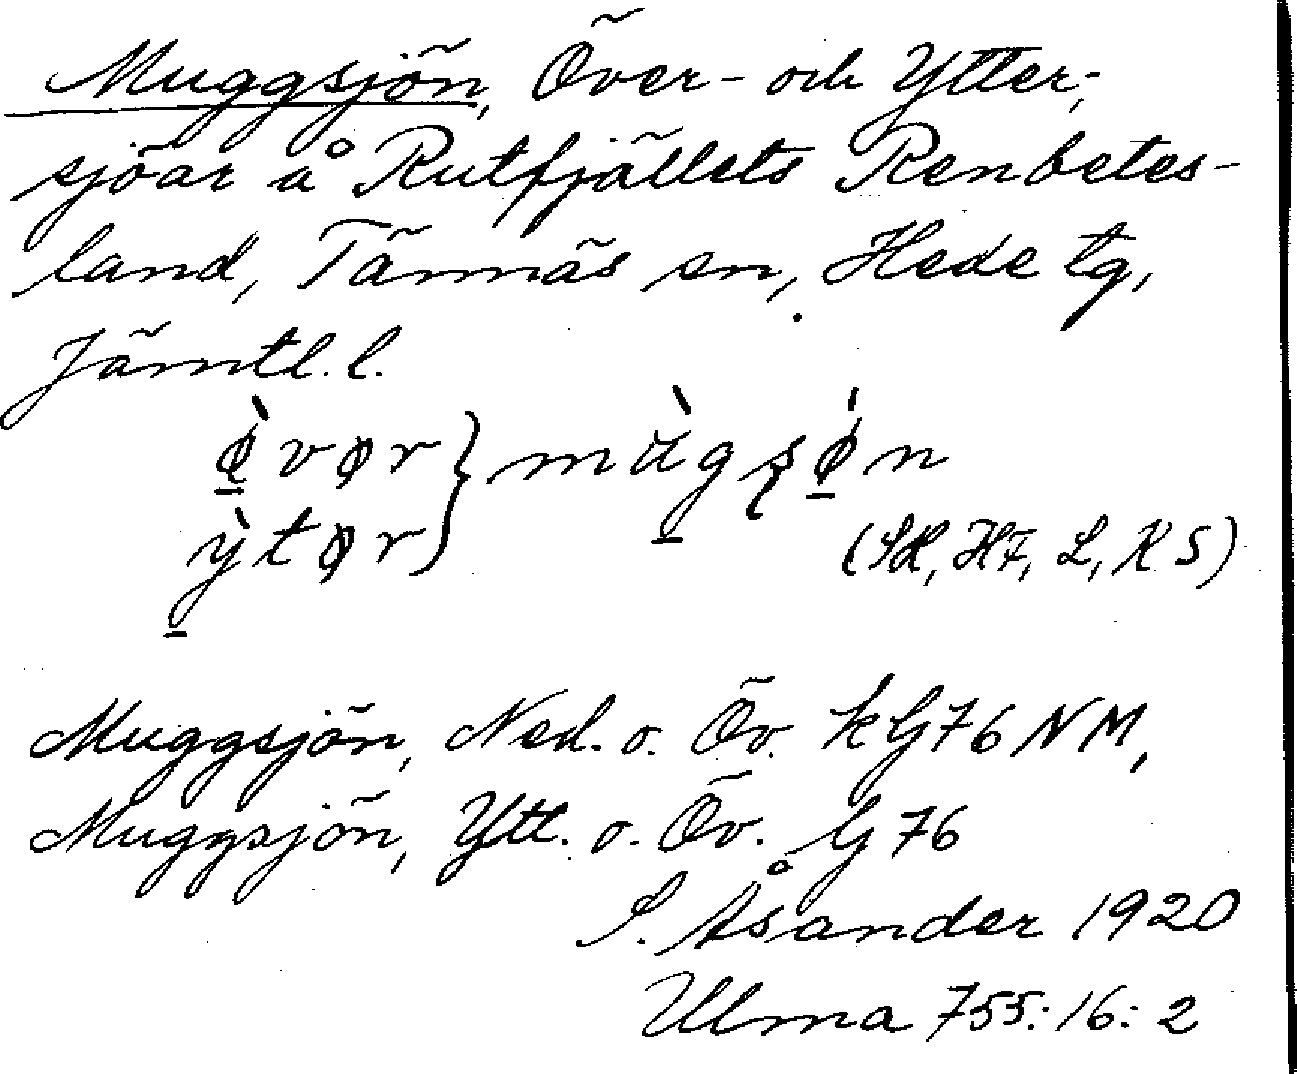 Muggsjön, Över- och Ytter-,
sjöar å Rutfjällets Renbetes-
land, Tännäs sn, Hede tg,
Jämtl. l.
ø̀vør } mùgsø̀n
ỳtør
(SH, HF, L, KS)
Muggsjön, Ned. o. Öv. kG76NM,
Muggsjön, Ytt. o. Öv. G76
S. Åsander 1920
Ulma 755:16:2